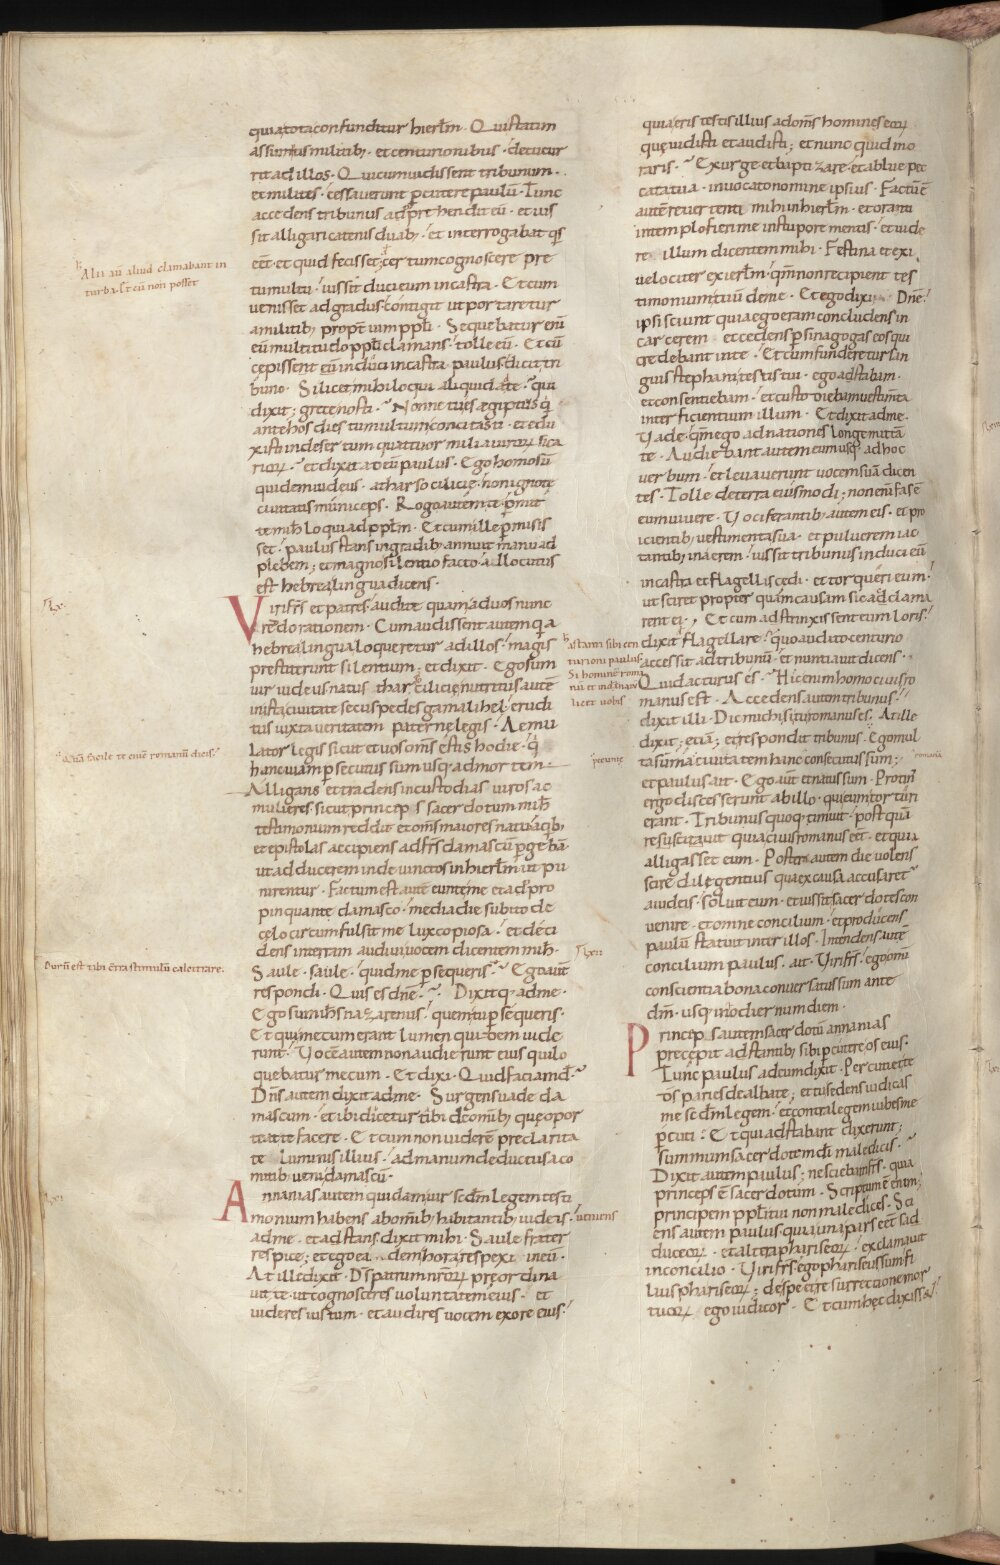 quia tota confunditur hierłm. Qui statim
assumtis militib; et centurionibus decucur
rit ad illos. Qui cum vidissent tribunum
et milites cessaverunt percutere paulū. Tunc
accedens tribunus adprehendit eū et ius
sit alligari catenis duab; et interrogabat qs
eēt et quid fecisset
tumultu iussit duci eum in castra. Et cum
venisset ad gradus contigit ut portaretur
a militib; propt vim ppli. Sequebatur enī
eū multitudo ppli clamans tolle eū. Et cū
cepissent eū induci in castra paulus dicit tri
buno. Si licet mihi loqui aliquid ad te qui
dixit; grece nosti. Nonne tu es ægiptius q
ante hos dies tumultum concitasti et edu
xisti in desertum quattuor milia virorꝝ sica
riorꝝ. et dixit ad eū paulus. Ego homo sū
quidem iudeus a tharso cilicie non ignote
civitatis municeps. Rogo autem te pmitt
te mihi loqui ad pplm. Et cum ille pmisis
set paulus stans in gradib; annuit manu ad
plebem; et magno silentio facto allocutus
est hebrea lingua dicens.
Viri frs et patres audite quam ad vos nunc
reddo rationem. Cum audissent autem q a
hebrea lingua loqueretur ad illos magis
prestiterunt silentium. et dixit. Ego sum
vir iudeus natus thar cilicie nutritus autē
in ista civitate secus pedes gamalihel erudi
tus iuxta veritatem paterne legis. Aemu
lator legis sicut et vos oms estis hodie. q
hanc viam psecutus sum usq; ad mortem.
Alligans et tradens in custodias viros ac
mulieres sicut princip s sacerdotum mihi
testimonium reddit et oms maiores natu a qib;
et epistolas accipiens ad frs damascū pgebā
ut ad ducerem inde vinctos in hierłm ut pu
nirentur. Factum est autē eunte me et adpro
pinquante damasco media die subito de
celo circumfulsit me lux copiosa. et deci
dens in terram audivi vocem dicentem mihi
Saule. saule. quid me psequeris. Ego aūt
respondi. Quis es dnē. Dixitq; ad me.
Ego sum ihs nazarenus quem tu psequeris.
Et qui mecum erant lumen quidem vide
runt. Vocē autem non audierunt eius qui lo
quebatur mecum. Et dixi. Quid faciam dē.
Dns autem dixit ad me. Surgens vade da
mascum et ibi dicetur tibi de omib; que opor
teat te facere. Et cum non viderē pre clarita
te luminis illius ad manum deductus a co
mitib; veni damascū.
Annanias autem quidam vir scdm legem testi
monium habens ab omib; habitantib; iudeis.
ad me. et adstans dixit mihi. Saule frater
respice; et ego ea dem hora respexi in eū.
At ille dixit. Ds patrum nrorꝝ preordina
vit te ut cognosceres voluntatem eius et
videres iustum et audires vocem ex ore eius.
quia eris testis illius ad oms homines eorꝝ
que vidisti et audisti; et nunc quid mo
raris. Exurge et baptizare et ablue pec
cata tua invocato nomine ipsius. Factū ē
autē revertenti mihi in hierłm et oranti
in templo fieri me in stupore mentis et vide
re illum dicentem mihi. Festina et exi
velociter ex ierłm. qm̄ non recipient tes
timonium tuū de me. Et ego dixi Dnē
ipsi sciunt quia ego eram concludens in
carcerem et cedens p sinagogas eos qui
credebant in te. Et cum funderetur san
guis stephani testis tui ego adstabam
et consentiebam et custodiebam vestimta
interficientium illum. Et dixit ad me.
Vade qm̄ ego ad nationes longe mittā
te. Audiebant autem eum usq; ad hoc
verbum et levaverunt vocem suā dicen
tes. Tolle de terra eiusmodi; non enī fas ē
eum vivere. Vociferantib; autem eis et pro
icientib; vestimenta sua et pulverem iac
tantib; in aerem iussit tribunus induci eū
in castra et flagellis cedi et torqueri eum.
ut sciret propter quam causam sic adclama
rent ei. Et cum adstrinxissent eum loris
dixit
flagellare quo audito centurio
accessit ad tribunū et nuntiavit dicens.
Quid acturus es. Hic enim homo civis ro
manus est. Accedens autem tribunus
dixit illi. Dic michi si tu romanus es. At ille
dixit; etiā; et respondit tribunus. Ego mul
ta summa civitatem hanc consecutus sum;
et paulus ait. Ego aūt et natus sum. Protin
ergo discesserunt ab illo qui eum torturi
erant. Tribunus quoq; timuit post quā
rescivit quia civis romanus eēt et quia
alligasset eum. Postera autem die volens
scire diligentius qua ex causa accusaret
a iudeis solvit eum et iussit sacerdotes con
venire et omne concilium et producens
paulū statuit inter illos. Intendens autē
concilium paulus ait. Viri frs ego omi
conscientia bona conversatus sum ante
dm̄ usq; in hodiernum diem.
Princip s autem sacerdotū annanias
precepit adstantib; sibi pcutere os eius.
Tunc paulus ad eum dixit. Percutiet te
ds paries dealbate; et tu sedens iudicas
me scdm legem et contra legem iubes me
pcuti. Et qui adstabant dixerunt;
summum sacerdotem di maledicis.
Dixit autem paulus; nesciebam frs quia
princeps ē sacerdotum. Scriptum ē enim;
principem ppli tui non maledices. Sci
ens autem paulus quia una pars eēt sad
duceorꝝ et altera phariseorꝝ exclamavit
in concilio. Viri frs ego phariseus sum fi
lius phariseorꝝ; de spe et resurrectione mor
tuorꝝ ego iudicor. Et cum hec dixisset
Alii aū aliud clamabant in
turba. et cū non posset
Quā facile te civē romanū dicis.
Durū est tibi ctra stimulū calcitrare.
astanti sibi cen
turioni paulus
Si hominē roma
nū et indānatū
licet vobis
pecunie
romanā
veniens